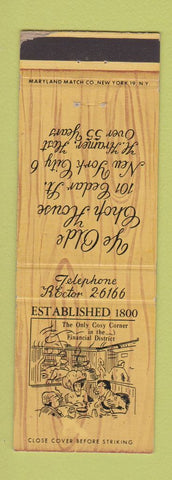 MARYLAND MATCH CO. NEW YORK, 19, N.Y.
Ye Olde
Chop House
101 Cedar St.
New York City 6
H. Kramer, Host
Over 55 Years
Telephone
REctor 26166
ESTABLISHED 1800
The Only Cosy Corner
in the
Financial District
CLOSE COVER BEFORE STRIKING